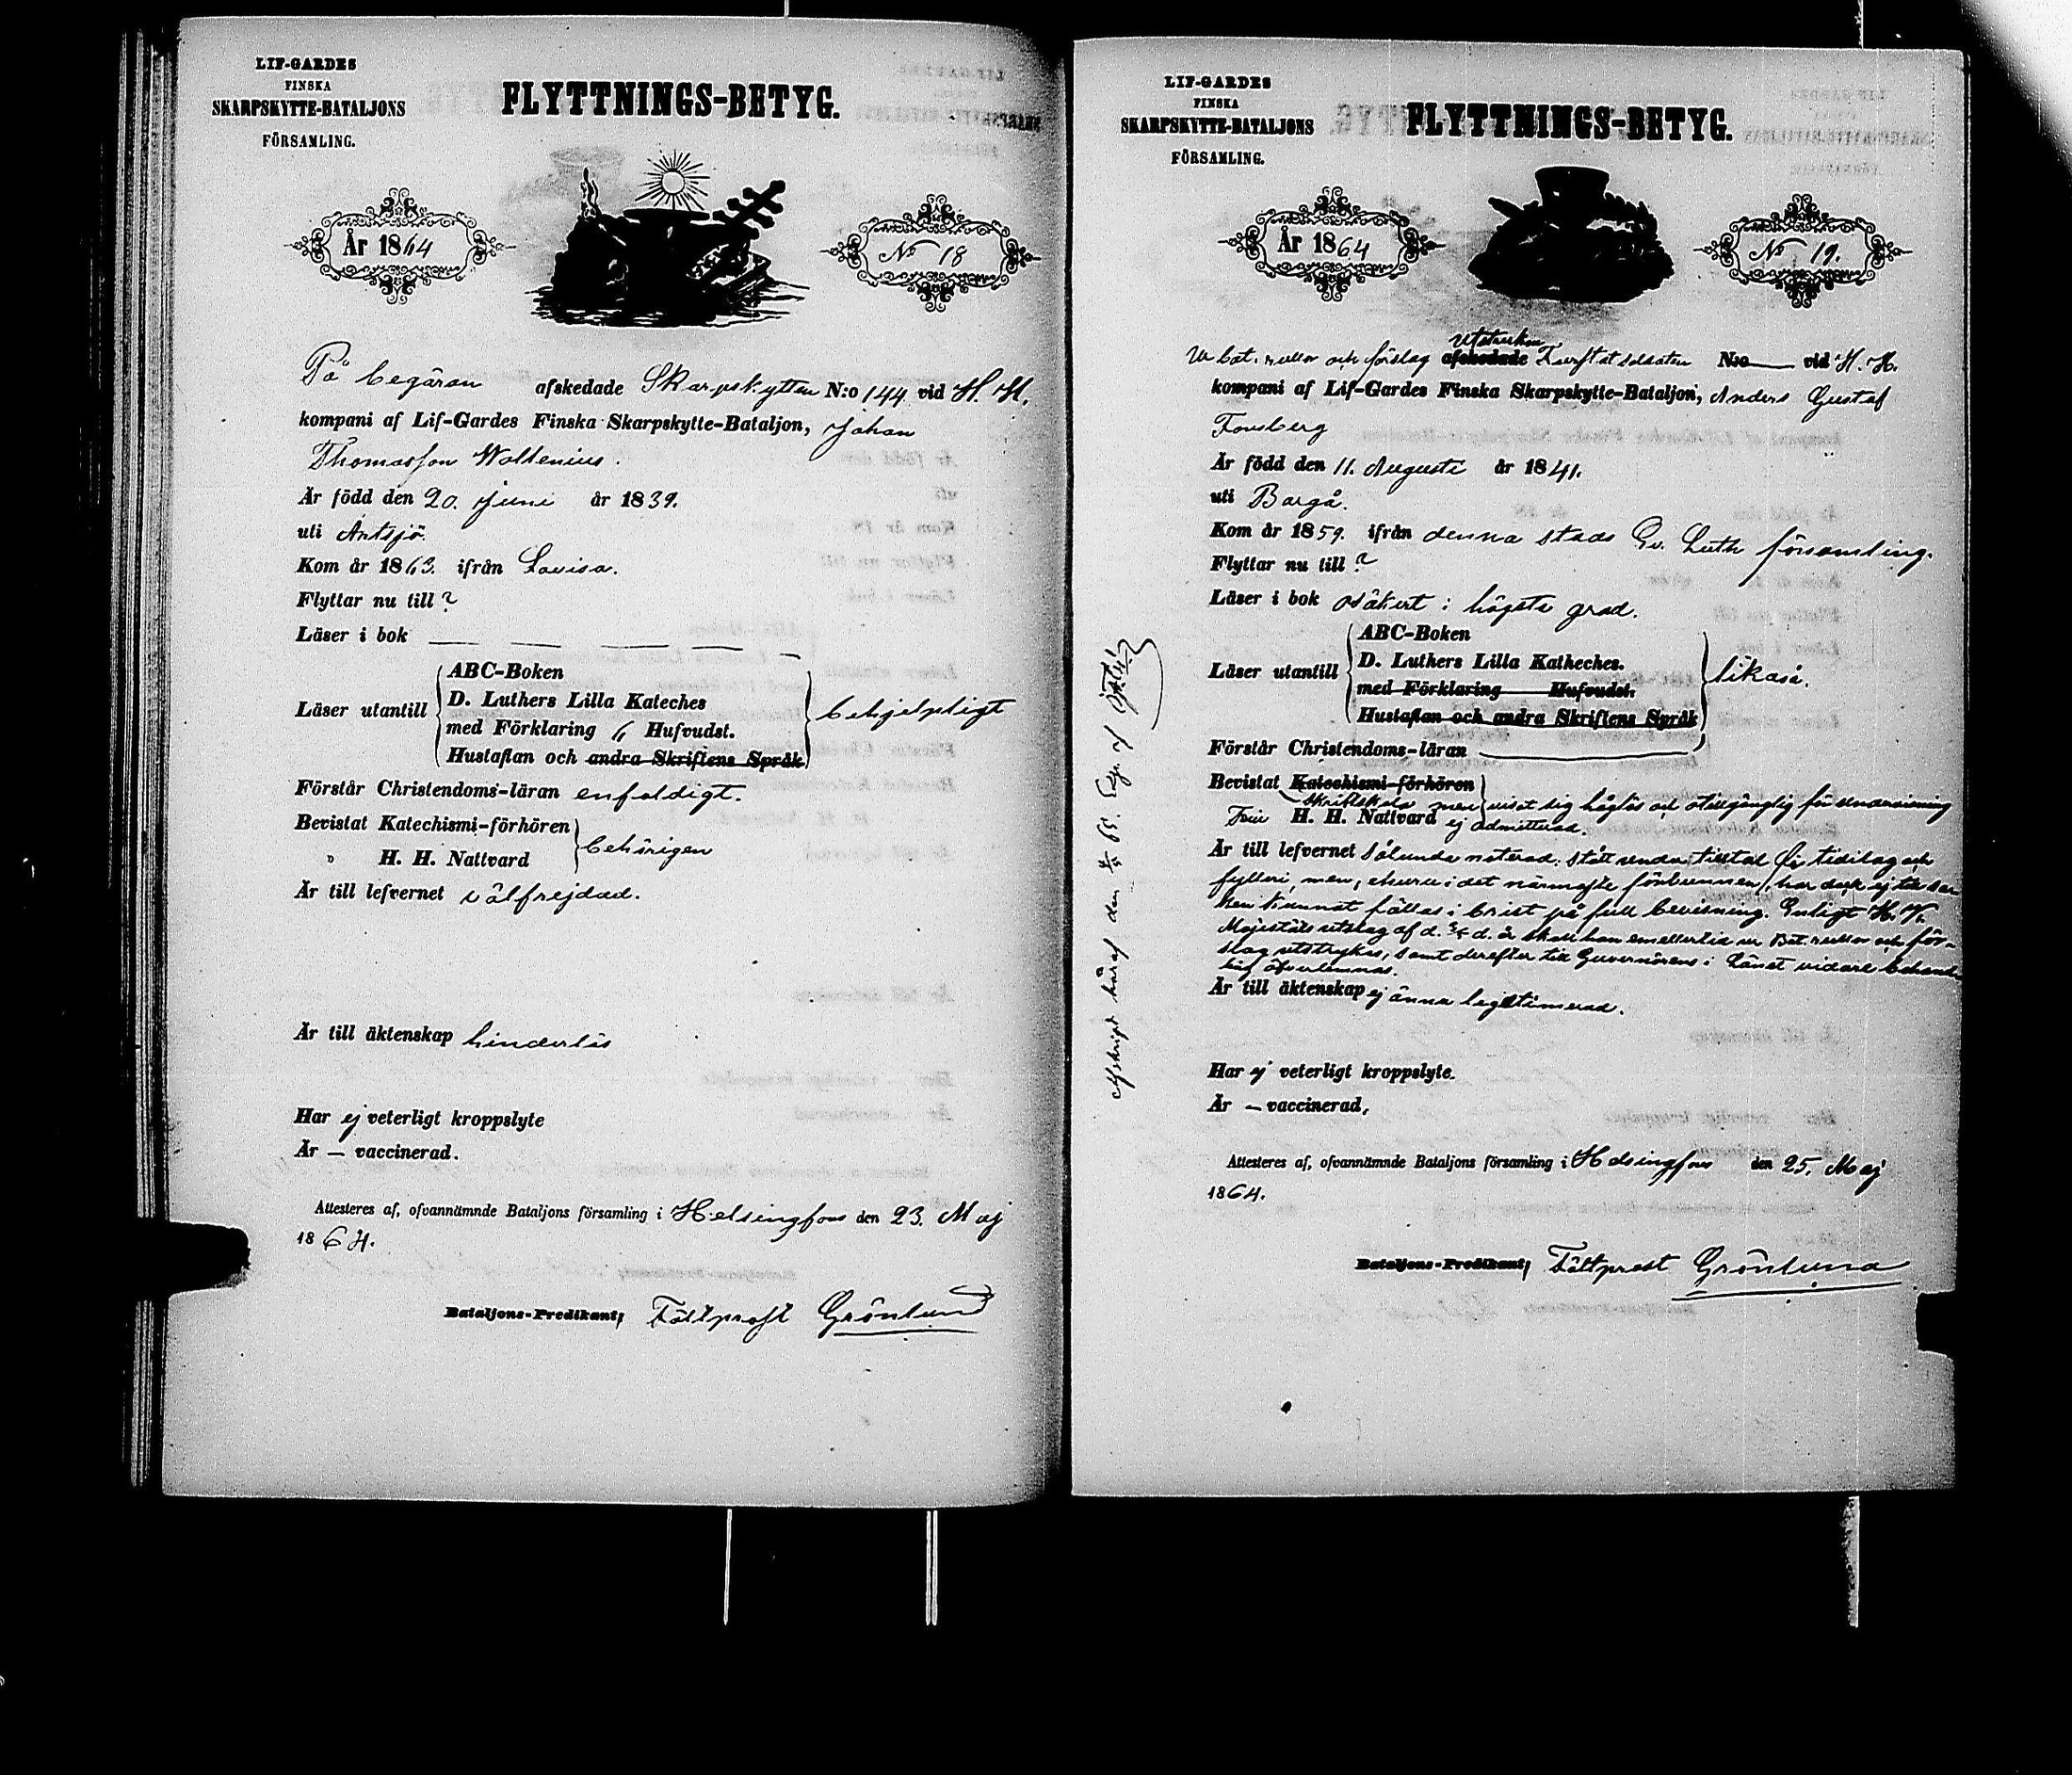 LIF-GARDES
FINSKA
SKARPSKYTTE-BATALJONS
FÖRSAMLING.
FLYTTNINGS-BETYG.
År 1864
No 18
På begäran afskedade Skarpskytten N:o 144 vid H. H.
kompani af Lif-Gardes Finska Skarpskytte-Bataljon, Johan
Thomasson Woltenius.
Är född den 20. Juni år 1839.
uti Artsjö.
Kom år 1863. ifrån Lovisa.
Flyttar nu till ?
Läser i bok — — — — —
ABC-Boken
D. Luthers Lilla Kateches
Läser utantill med Förklaring 6 Hufvudst. behjelpligt
Hustaflan och andra Skriftens Språk
Förstår Christendoms-läran enfaldigt.
Bevistat Katechismi-förhören
" H. H. Nattvard behörigen
Är till lefvernet välfrejdad.
Är till äktenskap hinderlös
Har ej veterligt kroppslyte
Är — vaccinerad.
Attesteres af, ofvannämnde Bataljons församling i Helsingfors den 23. Maj
1864.
Bataljons-Predikant, Fältprost Grönlund
LIF-GARDES
FINSKA
SKARPSKYTTE-BATALJONS
FÖRSAMLING.
FLYTTNINGS-BETYG.
År 1864
No 19.
utstrukne
Ur bat. rullor och förslag afskedade N:o — vid H. H.
kompani af Lif-Gardes Finska Skarpskytte-Bataljon, Anders Gustaf
Forsberg
Är född den 11. Augusti år 1841.
uti Borgå.
Kom år 1859. ifrån denna stads Ev. Luth församling.
Flyttar nu till ?
Läser i bok osäkert i högsta grad.
ABC-Boken
D. Luthers Lilla Katheches.
Läser utantill med Förklaring Hufvudst. likaså.
Hustaflan och andra Skriftens Språk
Förstår Christendoms-läran —
Bevistat Katechismi-förhören
skriftskola men visat sig håglös och otillgänglig för undervisning
H. H. Nattvard ej admitterad.
Är till lefvernet sålunda noterad: stått under tilltal för tidelag och
fylleri, men, ehuru i det närmaste förbunnen, har dock ej till
kunnat fällas i brist på full bevisning. Enligt H. K.
Majestäts utslag af d. d. å. skall han emellertid ur Bat. rullor och för-
slag utstrykas, samt derefter till Guvernörens i Länet vidare
öfverlemnas.
Är till äktenskap ej ännu legitimerad.
Har ej veterligt kroppslyte.
Är — vaccinerad,
Attesteres af, ofvannämnde Bataljons församling i Helsingfors den 25. Maj
1864.
Bataljons-Predikant, Fältprest Grönlund
Afskrift häraf den 65.